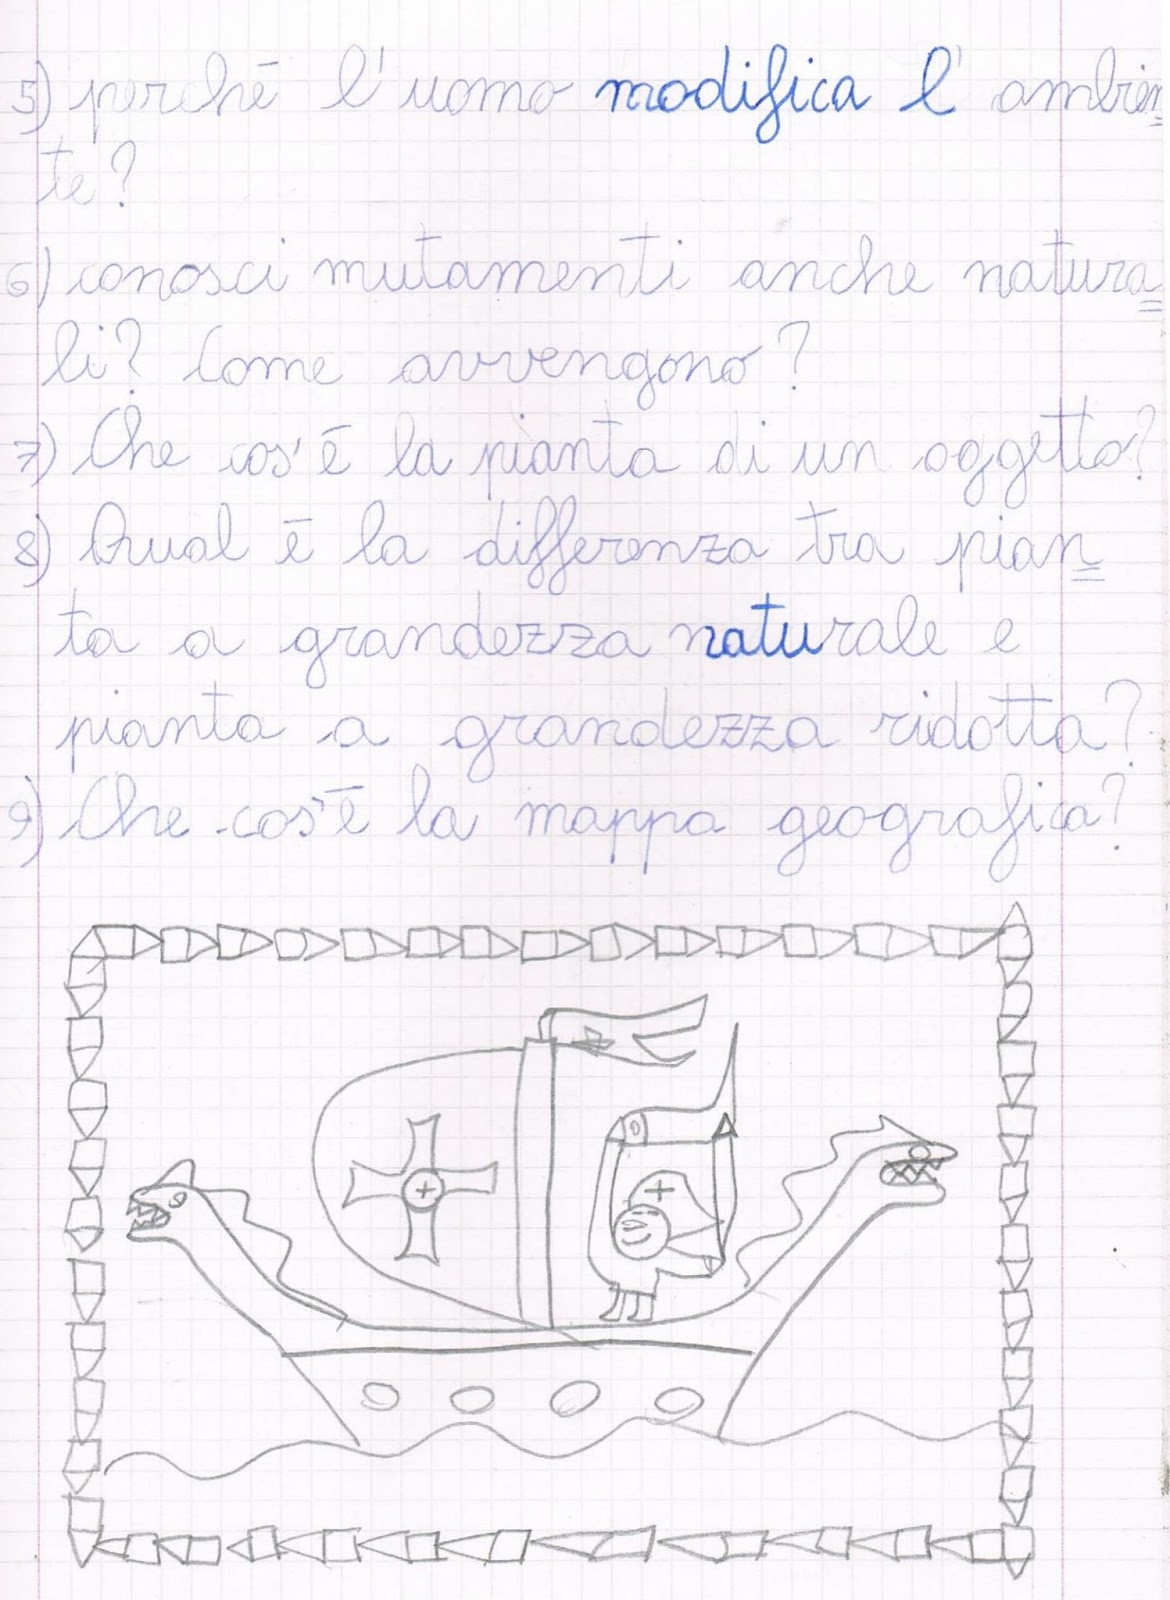 5) perchè l'uomo modifica l'ambien
te?
6) conosci mutamenti anche natura
li? Come avvengono?
7) Che cos'è la pianta di un oggetto?
8) Qual è la differenza tra pian
ta a grandezza naturale e
pianta a grandezza ridotta?
9) Che cos'è la mappa geografica?